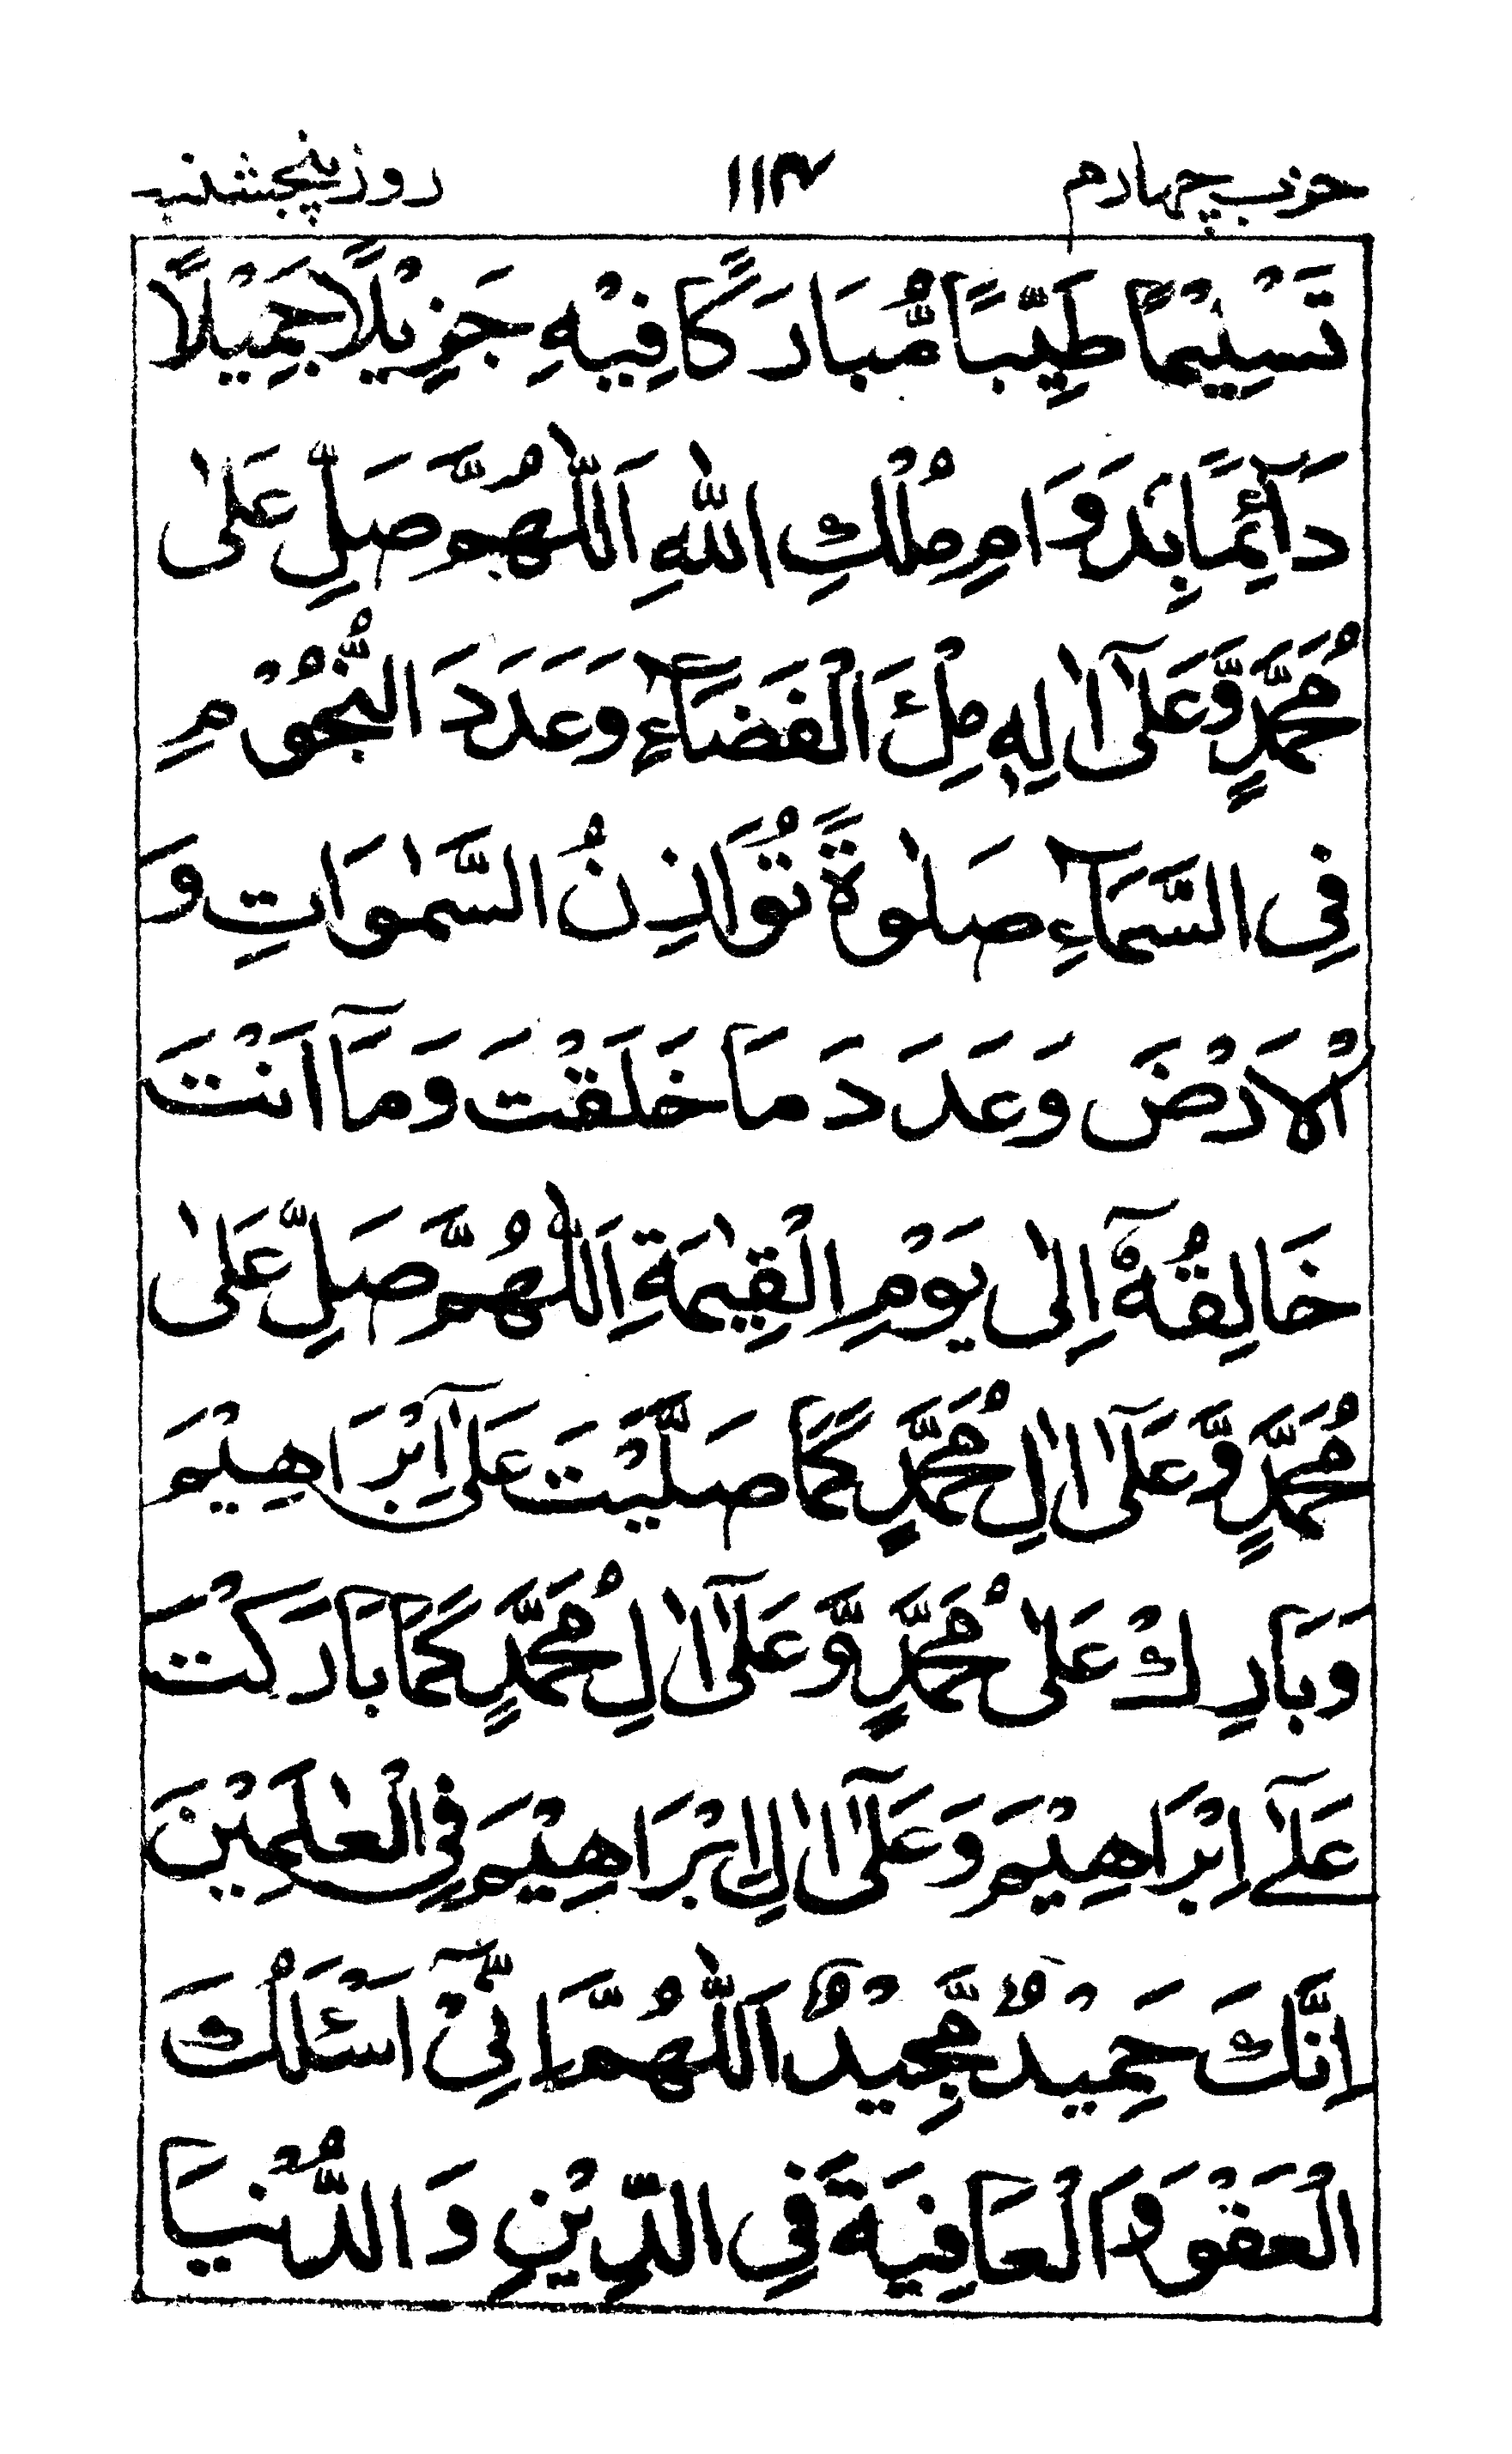 حزب چهارم ۱۱۴ روز پنجشنبه
تَسْلِيْمًا طَيِّبًا مُّبَارَكًا فِيْهِ جَزِيْلًا جَمِيْلًا
دَآئِمًا بِدَوَامِ مُلْكِ اللّٰهِ اَللّٰهُمَّ صَلِّ عَلٰى
مُحَمَّدٍ وَّعَلٰٓى اٰلِهٖ مِلْئَ الْفَضَآءِ وَعَدَدَ النُّجُوْمِ
فِى السَّمَآءِ صَلٰوةً تُوَازِنُ السَّمٰوَاتِ وَ
الْاَرْضَ وَعَدَدَ مَا خَلَقْتَ وَمَآ اَنْتَ
خَالِقُهٗٓ اِلٰى يَوْمِ الْقِيٰمَةِ اَللّٰهُمَّ صَلِّ عَلٰى
مُحَمَّدٍ وَّعَلٰٓى اٰلِ مُحَمَّدٍ كَمَا صَلَّيْتَ عَلٰٓى اِبْرَاهِيْمَ
وَبَارِكْ عَلٰى مُحَمَّدٍ وَّعَلٰٓى اٰلِ مُحَمَّدٍ كَمَا بَارَكْتَ
عَلٰٓے اِبْرَاهِيْمَ وَعَلٰٓى اٰلِ اِبْرَاهِيْمَ فِى الْعٰلَمِيْنَ
اِنَّكَ حَمِيْدٌ مَّجِيْدٌ اَللّٰهُمَّ اِنِّىْٓ اَسْئَلُكَ
الْعَفْوَ وَالْعَافِيَةَ فِى الدِّيْنِ وَالدُّنْيَا